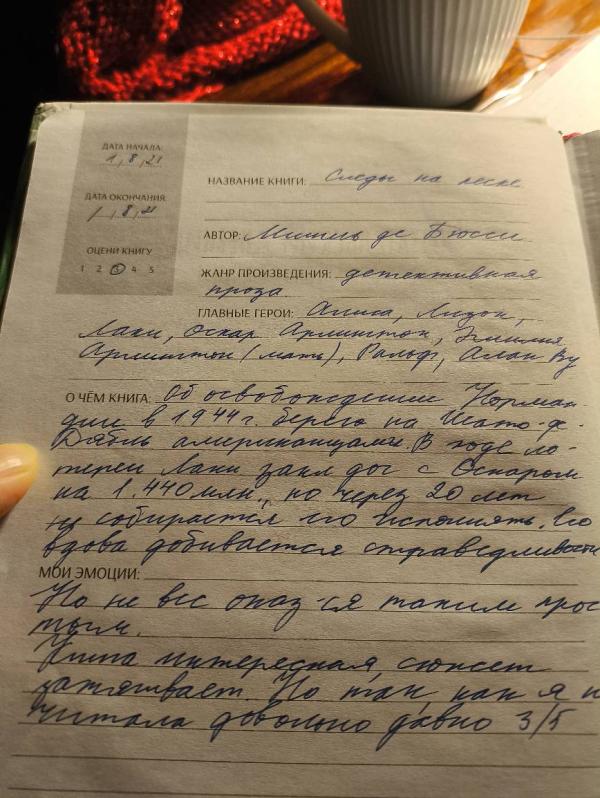 ДАТА НАЧАЛА:
1, 8, 21
ДАТА ОКОНЧАНИЯ:
/, 8, 21
ОЦЕНИ КНИГУ
1 2 3 4 5
НАЗВАНИЕ КНИГИ: Следы на песке
АВТОР: Мишель де Бюсси
ЖАНР ПРОИЗВЕДЕНИЯ: детективная
проза
ГЛАВНЫЕ ГЕРОИ: Алиса, Лизон,
Лаки, Оскар Арлингтон, Эмилия
Арлингтон (мать), Ральф, Алан Ву
О ЧЁМ КНИГА: Об освобождении Норман-
дии в 1944г. берега на Шато-д-
Дьябль американцами. В ходе ло-
тереи Лаки закл дог с Оскаром
на 1.440 млн., но через 20 лет
не собирается его исполнять. Его
вдова добивается справедливости
МОИ ЭМОЦИИ:
Но не все оказ-ся таким прос
тым.
Книга интересная, сюжет
затягивает. Но так как я и
читала довольно давно 3/5